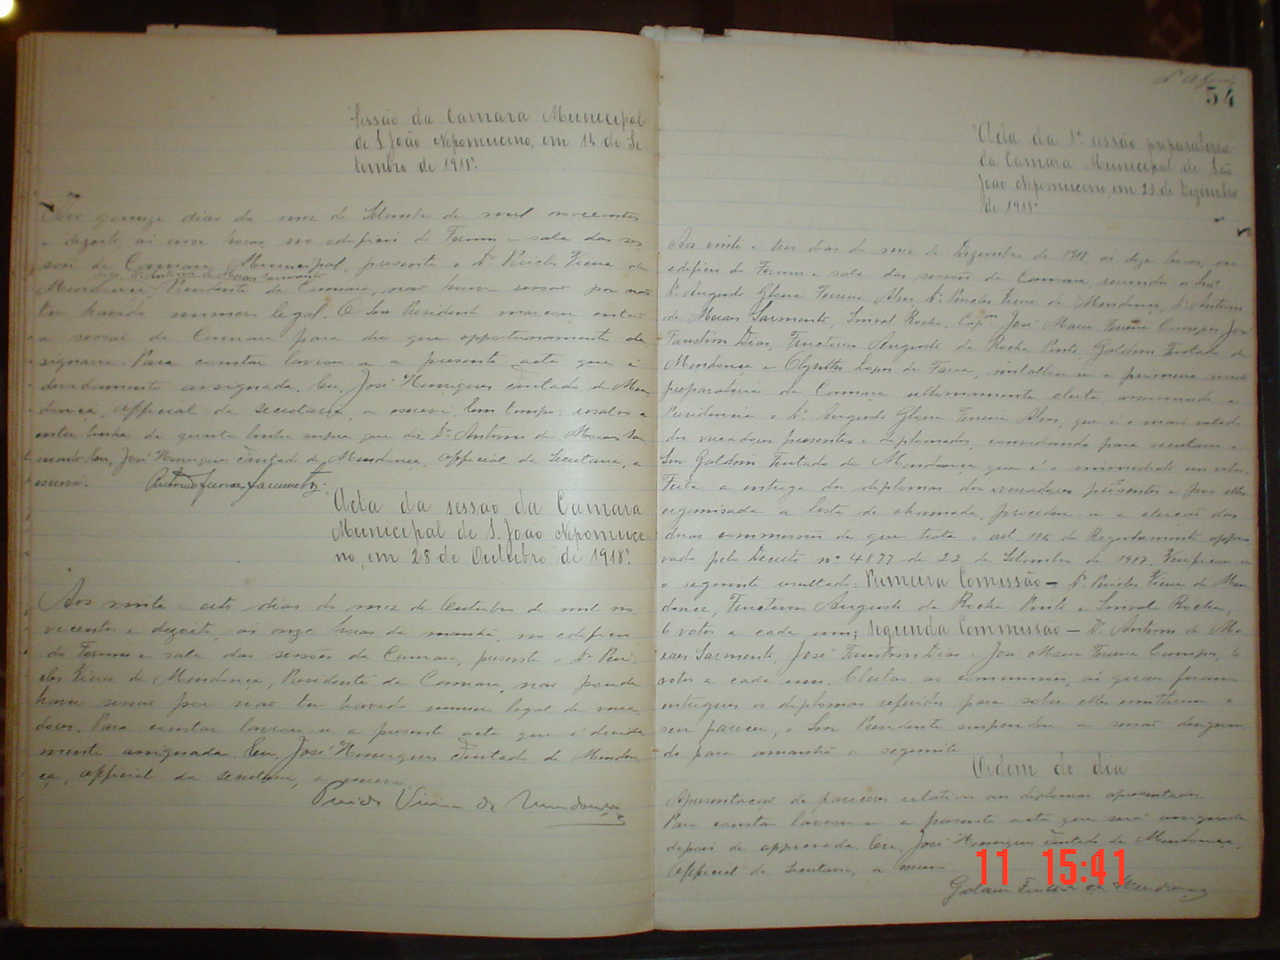 Sessão da Camara Municipal
de S. João Nepomuceno, em 15 de Se-
tembro de 1918.
Aos quinze dias do mez de Setembro de mil novecentos
e dezoito, ás onze horas, no edificio do Forum e sala das ses-
sões da Camara Municipal, presente o Dr. Pericles Vieira de
digo, Dr. Antonio de Moraes Sarmento
Mendonça, Presidente da Camara, não houve sessão por não
ter havido numero legal. O Snr. Presidente marcou então
a sessão da Camara para dia que opportunamente de-
signará. Para constar lavrou-se a presente acta que é
devidamente assignada. Eu, José Henriques Furtado de Men-
donça, official da secretaria, a escrevi. Em tempo: resalvo a
entre linha da quarta linha supra que diz Dr. Antonio de Moraes Sar-
mento. Eu, José Henriques Furtado de Mendonça, official da Secretaria, a
escrevi.
Acta da sessão da Camara
Municipal de S. João Nepomuce-
no, em 28 de Outubro de 1918.
Aos vinte e oito dias do mez de Outubro de mil no-
vecentos e dezoito, ás onze horas da manhã, no edificio
do Forum e sala das sessões da Camara, presente o Dr. Peri-
cles Vieira de Mendonça, Presidente da Camara, não poude
haver sessão por não ter havido numero legal de verea-
dores. Para constar lavrou-se a presente acta que é devida-
mente assignada. Eu, José Henriques Furtado de Mendon-
ça, official da secretaria, a escrevi.
Pericles Vieira de Mendonça
54
Acta da 1ª sessão preparatoria
da Camara Municipal de São
João Nepomuceno, em 23 de Dezembro
de 1918.
Aos vinte e tres dias do mez de Dezembro de 1918 ás doze horas, no
edificio do Forum e sala das sessões da Camara, reunidos os Snrs.
Dr. Augusto Gloria Ferreira Alves, Dr. Pericles Vieira de Mendonça, Dr. Antonio
de Moraes Sarmento, Sinval Rocha, Capm. José Maria Ferreira Campos, José
Faustino Dias, Fructuoso Augusto da Rocha Pinto, Galdino Furtado de
Mendonça e Olyntho Lopes de Faria, installou-se a primeira sessão
preparatoria da Camara ultimamente eleita, assumindo a
Presidencia o Dr. Augusto Gloria Ferreira Alves, que é o mais velho
dos vereadores presentes e diplomados, convidando para secretario o
Snr. Galdino Furtado de Mendonça que é o immediato em votos.
Feita a entrega dos diplomas dos vereadores presentes e por elles
organisada a lista de chamada, procedeu-se a eleição das
duas commissões de que trata o art. 116 do Regulamento appro-
vado pelo Decreto nº 4877 de 22 de Setembro de 1917. Verificou-se
o seguinte resultado: Primeira Comissão – Dr. Pericles Vieira de Men-
donça, Fructuoso Augusto da Rocha Pinto e Sinval Rocha,
6 votos a cada um; Segunda Commissão – Dr. Antonio de Mo-
raes Sarmento, José Faustino Dias e José Maria Ferreira Campos, 6
votos a cada um. Eleitas as commissões, ás quaes foram
entregues os diplomas referidos para sobre elles emittirem o
seu parecer, o Snr. Presidente suspendeu a sessão designan-
do para amanhã a seguinte
Ordem do dia
Apresentação de pareceres relativos aos diplomas apresentados.
Para constar lavrou-se a presente acta que será assignada
depois de approvada. Eu, José Henriques Furtado de Mendonça,
Official da Secretaria, a escrevi.
Galdino Furtado de Mendonça
11 15:41